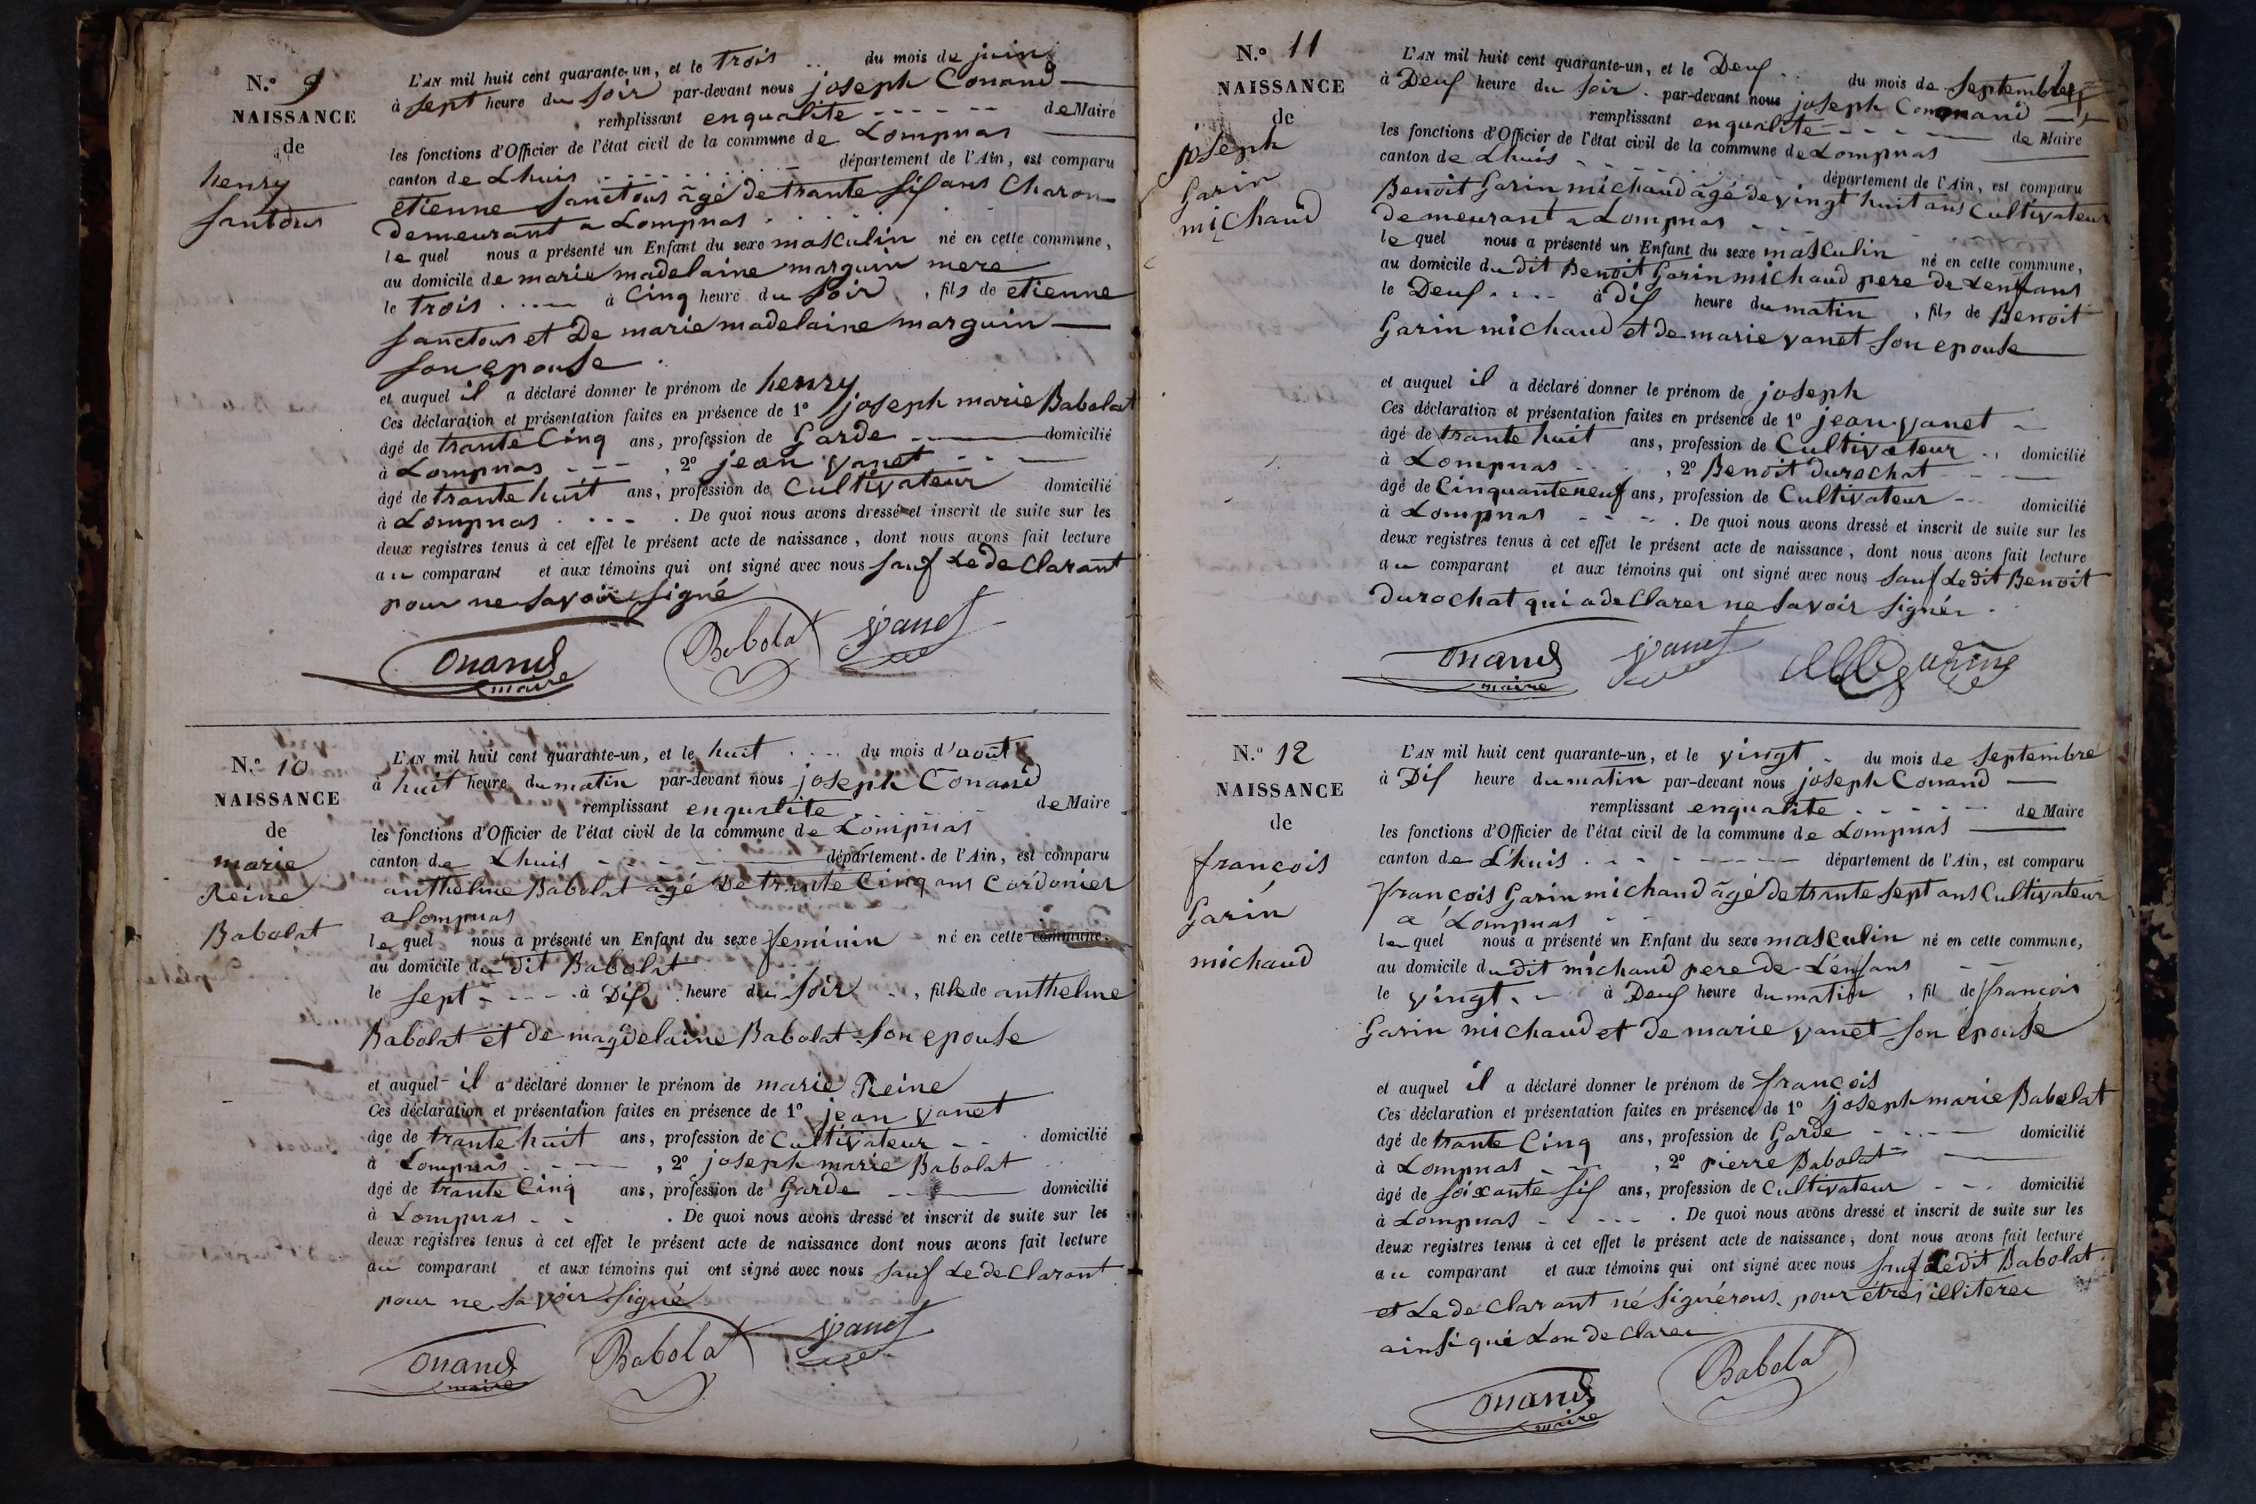 N.º 9
NAISSANCE
de
henry
sanctous
L'AN mil huit cent quarante-un, et le trois du mois de juin
à sept heure du soir par-devant nous joseph Conand
remplissant enqualite de Maire
les fonctions d'Officier de l'état civil de la commune de Lompnas
canton de Lhuis département de l'Ain, est comparu
etienne sanctous âgé de trante six ans Charon
demeurant a Lompnas
le quel nous a présenté un Enfant du sexe masculin né en cette commune,
au domicile de marie madelaine marguin mere
le trois à Cinq heure du soir, fils de etienne
sanctous et De marie madelaine marguin
son epouse
et auquel il a déclaré donner le prénom de henry
Ces déclaration et présentation faites en présence de 1º joseph marie Babolat
âgé de trante Cinq ans, profession de Garde domicilié
à Lompnas, 2º jean vanet
âgé de trante huit ans, profession de Cultivateur domicilié
à Lompnas. De quoi nous avons dressé et inscrit de suite sur les
deux registres tenus à cet effet le présent acte de naissance, dont nous avons fait lecture
au comparant et aux témoins qui ont signé avec nous sauf Le de Clarant
pour ne savoir signé
Conand Babolat jvanet
maire
N.º 10
NAISSANCE
de
marie
Reine
Babolat
L'AN mil huit cent quarante-un, et le huit du mois d'août
à huit heure du matin par-devant nous joseph Conand
remplissant enqualite de Maire
les fonctions d'Officier de l'état civil de la commune de Lompnas
canton de Lhuis département de l'Ain, est comparu
anthelme Babolat âgé De trante Cinq ans Cordonier
a lompnas
le quel nous a présenté un Enfant du sexe feminin né en cette commune.
au domicile du dit Babolat
le sept à Dix heure du soir, fille de anthelme
Babolat et de magdelaine Babolat son epouse
et auquel il a déclaré donner le prénom de marie Reine
Ces déclaration et présentation faites en présence de 1º jean vanet
âge de trante huit ans, profession de Cultivateur domicilié
à Lompnas, 2º joseph marie Babolat
âgé de trante Cinq ans, profession de Garde domicilié
à Lompnas. De quoi nous avons dressé et inscrit de suite sur les
deux registres tenus à cet effet le présent acte de naissance dont nous avons fait lecture
au comparant et aux témoins qui ont signé avec nous sauf Le de Clarant
pour ne savoir signé
Conand Babolat jvanet
maire
N.º 11
NAISSANCE
de
joseph
Garin
michaud
L'AN mil huit cent quarante-un, et le Deux du mois de septembre
à Deux heure du soir. par-devant nous joseph Conand
remplissant enqualite de Maire
les fonctions d'Officier de l'état civil de la commune de Lompnas
canton de Lhuis département de l'Ain, est comparu
Benoit Garin michaud âgé de vingt huit ans Cultivateur
demeurant a Lompnas
le quel nous a présenté un Enfant du sexe masculin né en cette commune,
au domicile du dit Benoit Garin michaud pere de Lenfans
le Deux à dix heure du matin, fils de Benoit
Garin michaud et de marie vanet son epouse
et auquel il a déclaré donner le prénom de joseph
Ces déclaration et présentation faites en présence de 1º jean vanet
âgé de trante huit ans, profession de Cultivateur domicilié
à Lompnas, 2º Benoit durochat
âgé de Cinquante neuf ans, profession de Cultivateur domicilié
à Lompnas. De quoi nous avons dressé et inscrit de suite sur les
deux registres tenus à cet effet le présent acte de naissance, dont nous avons fait lecture
au comparant et aux témoins qui ont signé avec nous sauf Le dit Benoit
durochat qui a de Clarer ne savoir signér.
Conand jvanet
maire
N.º 12
NAISSANCE
de
francois
Garin
michaud
L'AN mil huit cent quarante-un, et le vingt du mois de septembre
à Dix heure du matin par-devant nous joseph Conand
remplissant enqualite de Maire
les fonctions d'Officier de l'état civil de la commune de Lompnas
canton de Lhuis département de l'Ain, est comparu
françois Garin michaud âgé de trante sept ans Cultivateur
a Lompnas
le quel nous a présenté un Enfant du sexe masculin né en cette commune,
au domicile du dit michaud pere de L'enfans
le vingt à Deux heure du matin, fil de francois
Garin michaud et de marie vanet son epouse
et auquel il a déclaré donner le prénom de francois
Ces déclaration et présentation faites en présence de 1º joseph marie Babolat
âgé de trante Cinq ans, profession de Garde domicilié
à Lompnas, 2º pierre Babolat
âgé de soixante six ans, profession de Cultivateur domicilié
à Lompnas. De quoi nous avons dressé et inscrit de suite sur les
deux registres tenus à cet effet le présent acte de naissance, dont nous avons fait lecture
au comparant et aux témoins qui ont signé avec nous sauf Ledit Babolat
et Le de Clarant né signérons pour étres illiterer
ainsi qué Lon de Clarer
Conand Babolat
maire